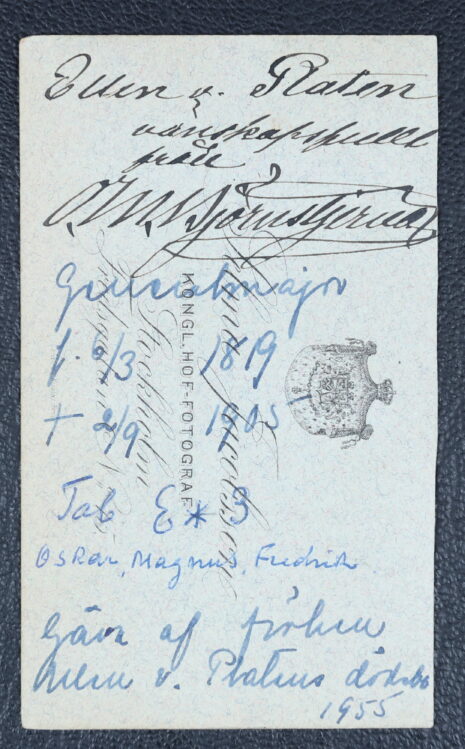 Ellen v. Platen
vänskapsfullt
från
O. M. Björnstjerna
Generalmajor
f. 6/3 1819
† 2/9 1905
Tab E * 3
Oskar, Magnus, Fredrik
Gåva af fröken
Ellen v. Platens dödsbo
1955
KONGL. HOF-FOTOGRAF
Stockholm